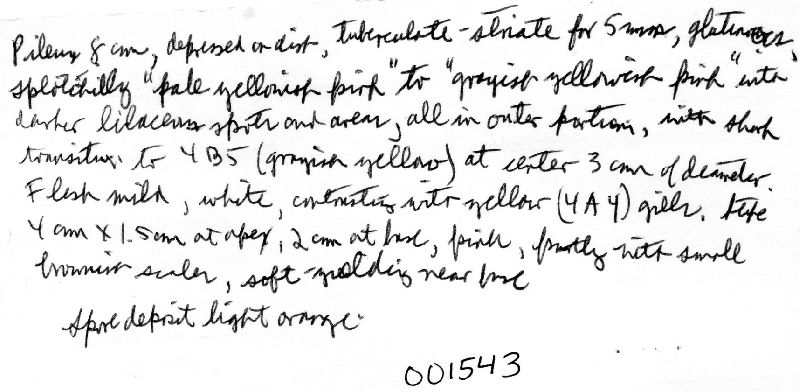 Pileus 8 cm, depressed on disk, tuberculate-striate for 5 mm, glutinous,
splotchilly "pale yellowish pink" to "grayish yellowish pink" with
darker lilaceous spots and areas, all in outer portion, with sharp
transition to 4B5 (grayish yellow) at center 3 cm of diameter.
Flesh mild, white, contrasting with yellow (4A4) gills. Stipe
4 cm X 1.5 cm at apex, 2 cm at base, pink, partly with small
brownish scales, soft-yielding near base
spore deposit light orange.
001543